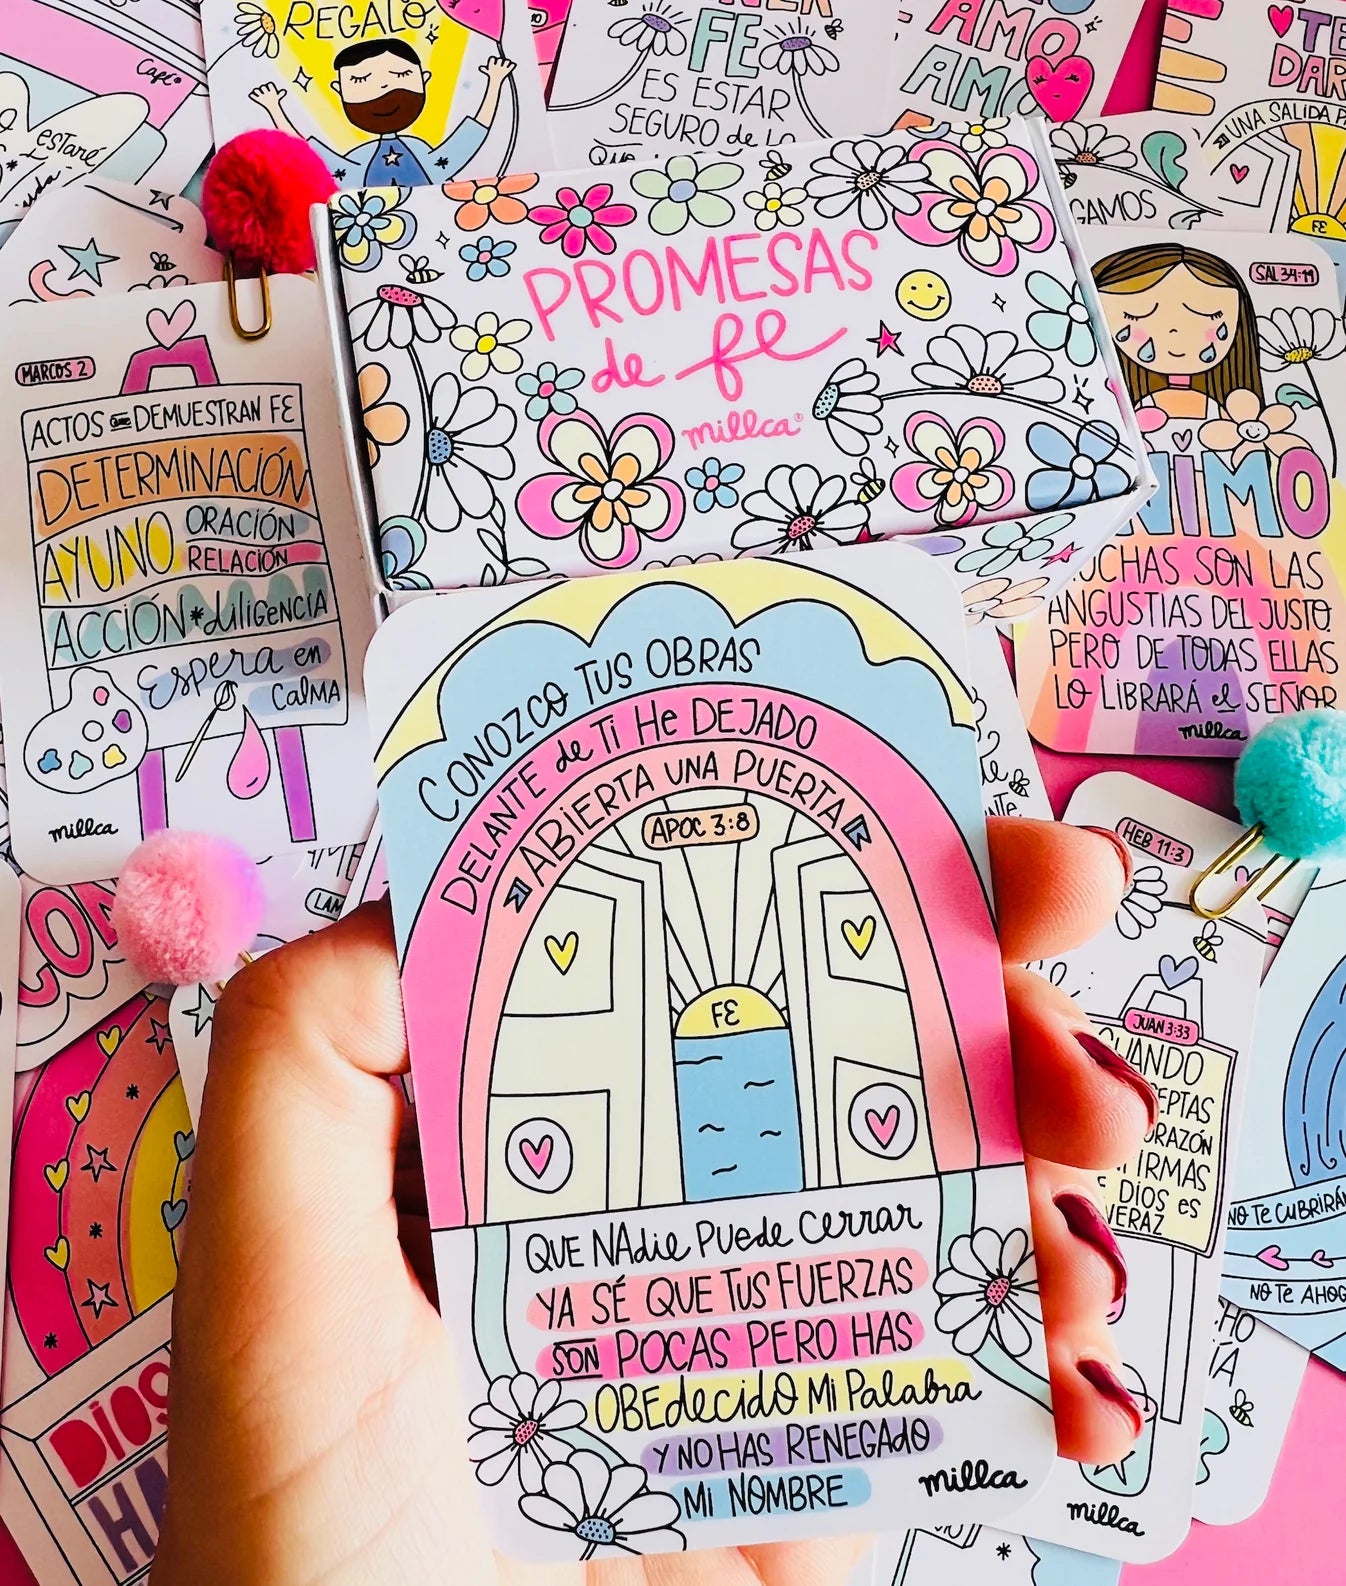 REGALO
FE
ES ESTAR
SEGURO de Lo
QUE
AMO
AMO
TE
DAR
UNA SALIDA
Café
estaré
GAMOS
FE
PROMESAS
de fe
millca
MARCOS 2
ACTOS QUE DEMUESTRAN FE
DETERMINACIÓN
AYUNO ORACIÓN
RELACIÓN
ACCIÓN * diligencia
Espera en
CalMA
millca
SAL 34:19
NIMO
UCHAS SON LAS
ANGUSTIAS DEL JUSTO,
PERO DE TODAS ELLAS
LO LIBRARÁ el SEÑOR
millca
CONOZCO TUS OBRAS
DELANTE de Ti He DEJADO
ABIERTA UNA PUERTA
APOC 3:8
FE
QUE NAdie PUede Cerrar
YA SÉ QUE TUS FUERZAS
SON POCAS PERO HAS
OBEdecido Mi Palabra
Y NO HAS RENEGAdO
Mi NOMBRE
millca
HEB 11:3
JUAN 3:33
UANDO
EPTAS
ORAZÓN
FIRMAS
E DIOS es
VERAZ
millca
NO Te CUBRIRÁN
NO Te AHOG
LAM
DIOS
HA